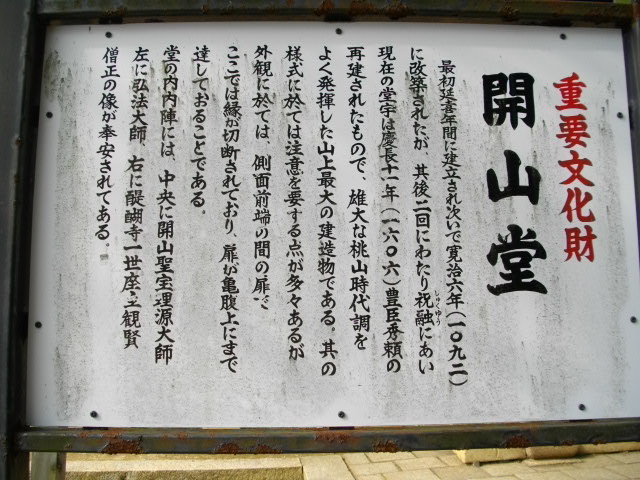 重要文化財
開山堂
最初延喜年間に建立され次いで寛治六年(一〇九二)
に改築されたが、其後二回にわたり祝融にあい
しゅくゆう
現在の堂宇は慶長十一年(一六〇六)豊臣秀頼の
再建されたもので、雄大な桃山時代調を
よく発揮した山上最大の建造物である。其の
様式に於ては注意を要する点が多々あるが
外観に於ては、側面前端の間の扉で
ここでは縁が切断されており、扉が亀腹上にまで
達しておることである。
堂の内内陣には、中央に開山聖宝理源大師
左に弘法大師、右に醍醐寺一世座主観賢
僧正の像が奉安されてある。